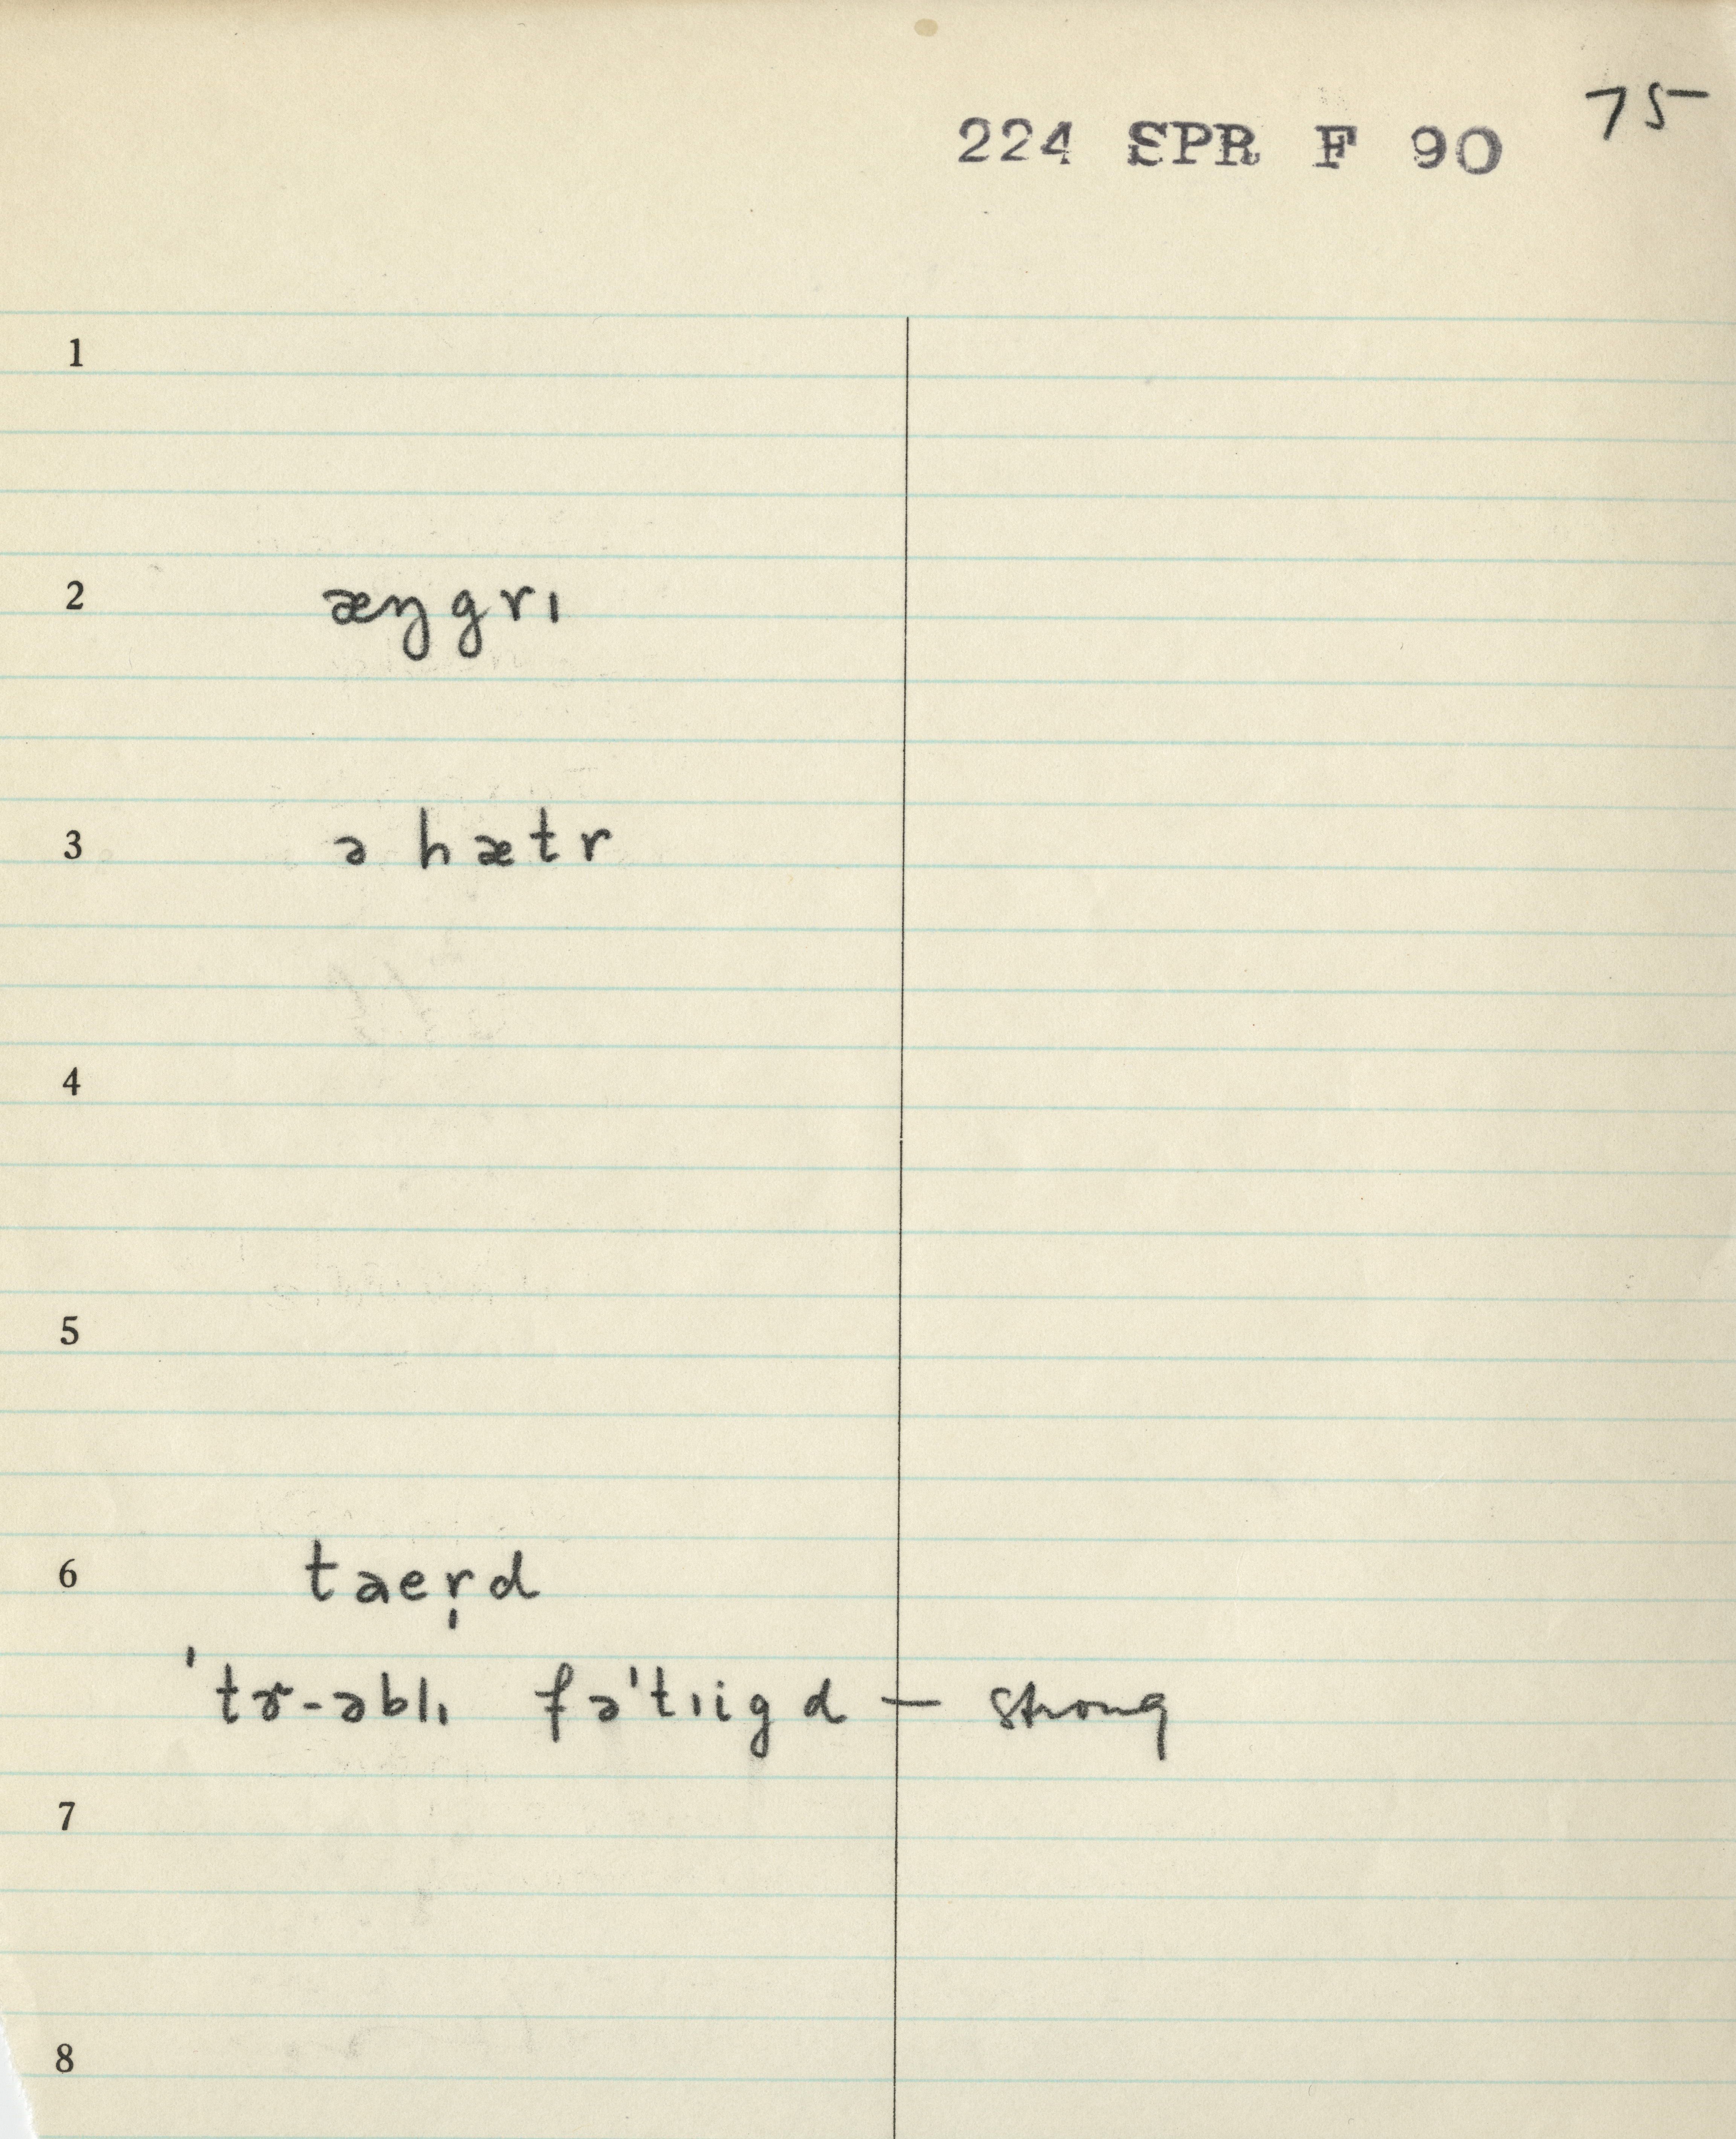 75
224 SPR F 90
1
2 æŋgrɪ
3 ə hætr
4
5
6 taer̩d
'tɚ-əblɪ fə'tɪigd — strong
7
8